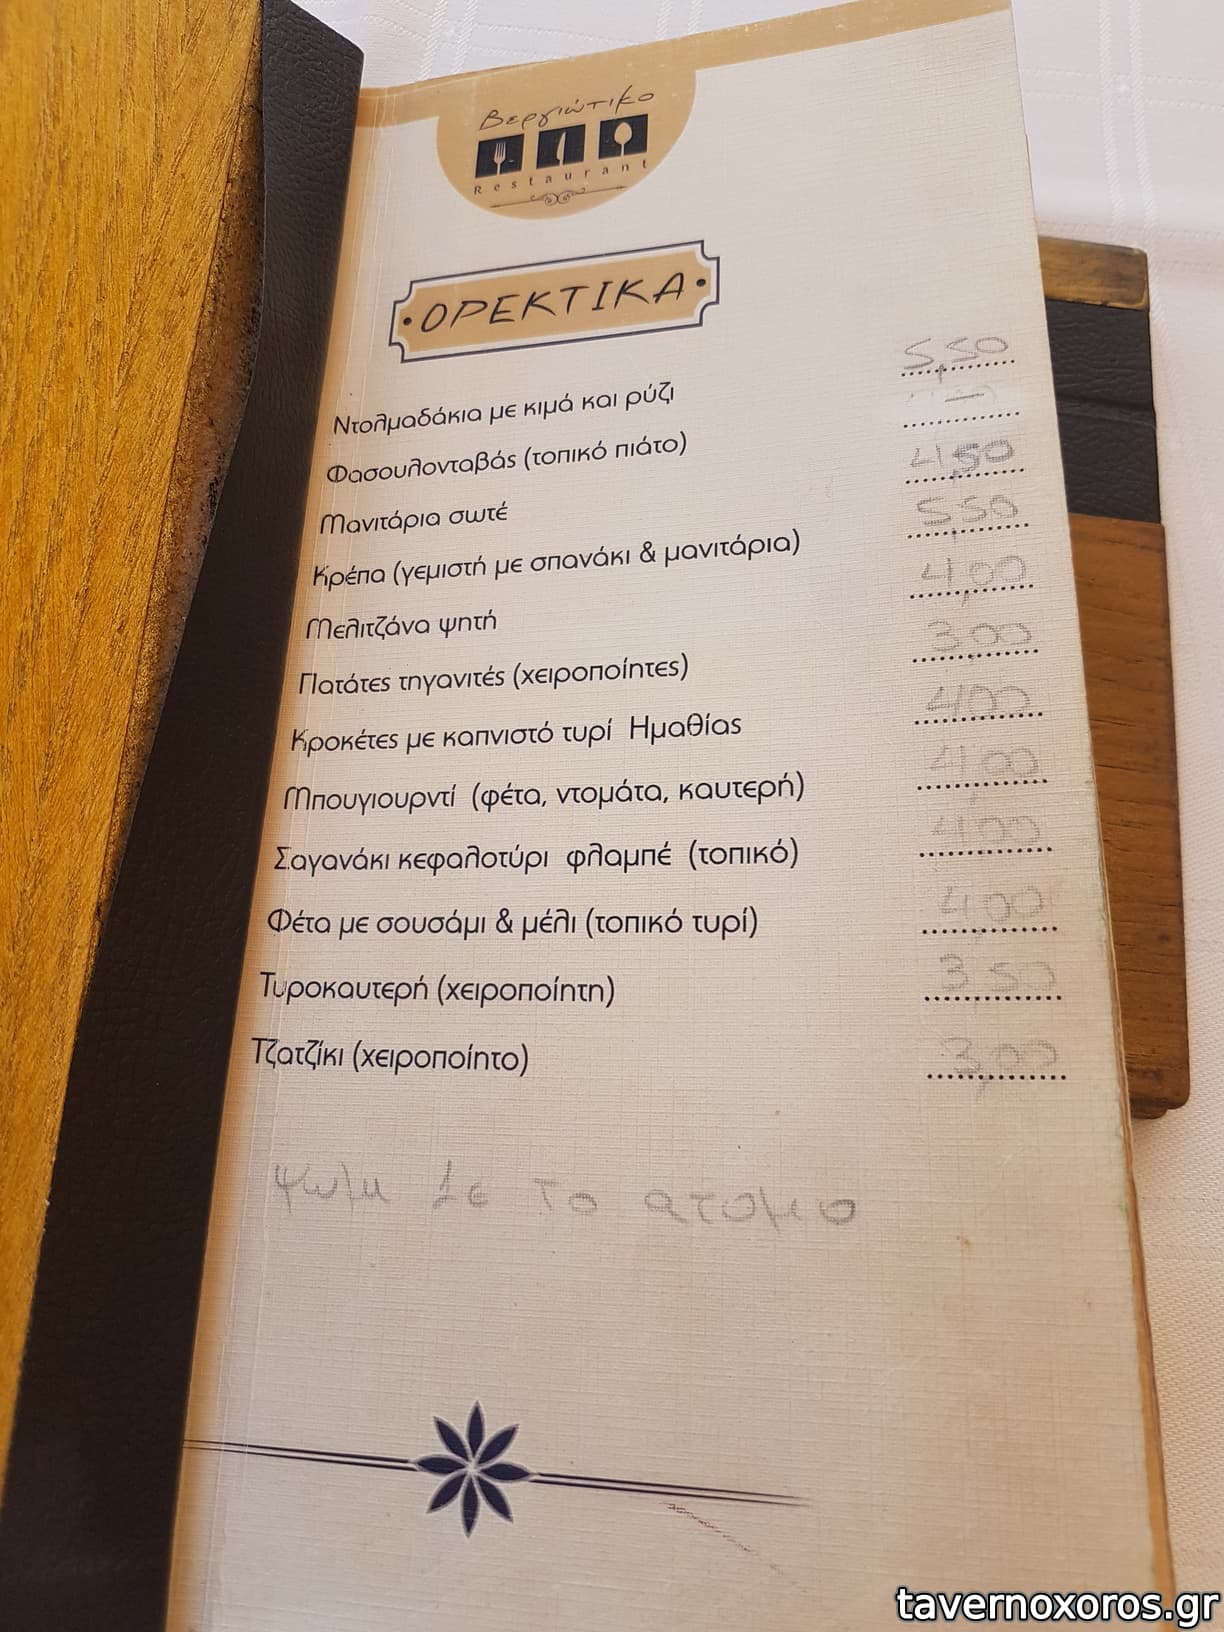 Βεργιώτικο
Restaurant
ΟΡΕΚΤΙΚΑ
Ντολμαδάκια με κιμά και ρύζι 5,50
Φασουλονταβάς (τοπικό πιάτο) —
Μανιτάρια σωτέ 4,50
Κρέπα (γεμιστή με σπανάκι & μανιτάρια) 5,50
Μελιτζάνα ψητή 4,00
Πατάτες τηγανιτές (χειροποίητες) 3,00
Κροκέτες με καπνιστό τυρί Ημαθίας 4,00
Μπουγιουρντί (φέτα, ντομάτα, καυτερή) 4,00
Σαγανάκι κεφαλοτύρι φλαμπέ (τοπικό) 4,00
Φέτα με σουσάμι & μέλι (τοπικό τυρί) 4,00
Τυροκαυτερή (χειροποίητη) 3,50
Τζατζίκι (χειροποίητο) 3,00
1ε το ατομο
tavernoxoros.gr